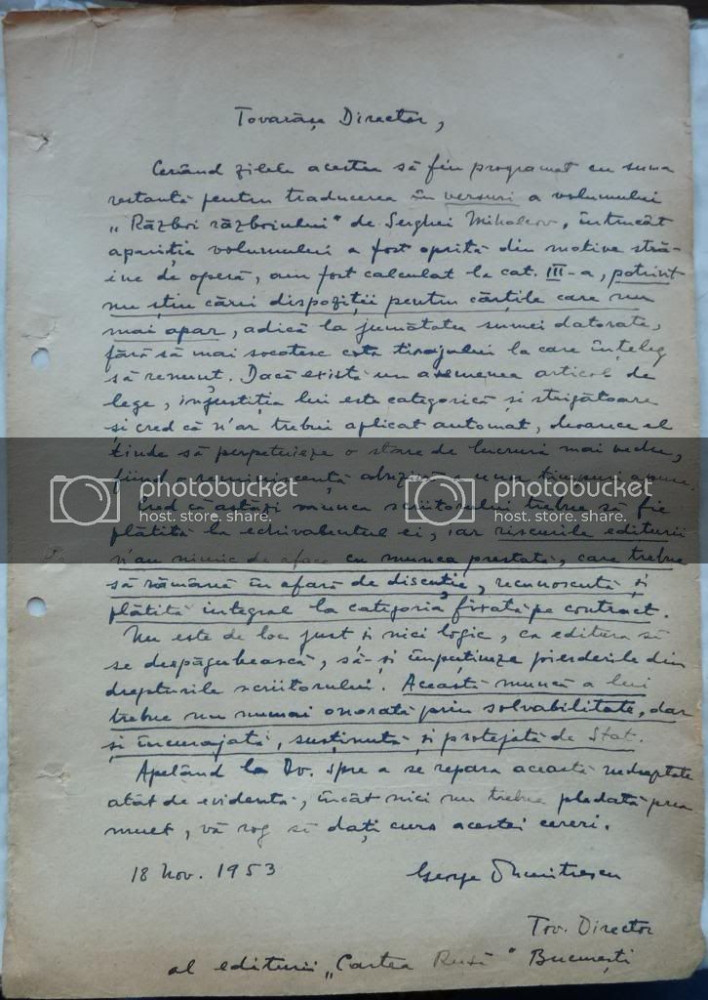 Tovarășe Director,
Cerând zilele acestea să fiu programat cu suma
restantă pentru traducerea în versuri a volumului
„Război războiului" de Serghei Mihalcov, întrucât
apariția volumului a fost oprită din motive stră-
ine de operă, am fost calculat la cat. III-a, potrivit
nu știu cării dispoziții pentru cărțile care nu
mai apar, adică la jumătatea sumei datorate,
fără să mai socotesc cota tirajului la care înțeleg
să renunt. Dacă există un asemenea articol de
lege, injustiția lui este categorică și strigătoare
și cred că n'ar trebui aplicat automat, deoarece el
tinde să perpetuieze o stare de lucruri mai veche,
fiind o reminiscență abuzivă a unor timpuri apuse.
photobucket photobucket
host. store. share. host. store. share.
Cred că astăzi munca scriitorului trebue să fie
plătită la echivalentul ei, iar riscurile editurii
n'au nimic de aface cu munca prestată, care trebue
să rămână în afară de discuție, recunoscută și
plătită integral la categoria fixată pe contract.
Nu este de loc just și nici logic, ca editura să
se despăgubească, să-și împuțineze pierderile din
drepturile scriitorului. Această muncă a lui
trebue nu numai onorată prin solvabilitate, dar
și încurajată, susținută și protejată de Stat.
Apelând la Dv. spre a se repara această nedreptate
atât de evidentă, încât nici nu trebue pledată prea
mult, vă rog să dați curs acestei cereri.
18 Nov. 1953 George Dumitrescu
Tov. Director
al editurii „Cartea Rusă" București